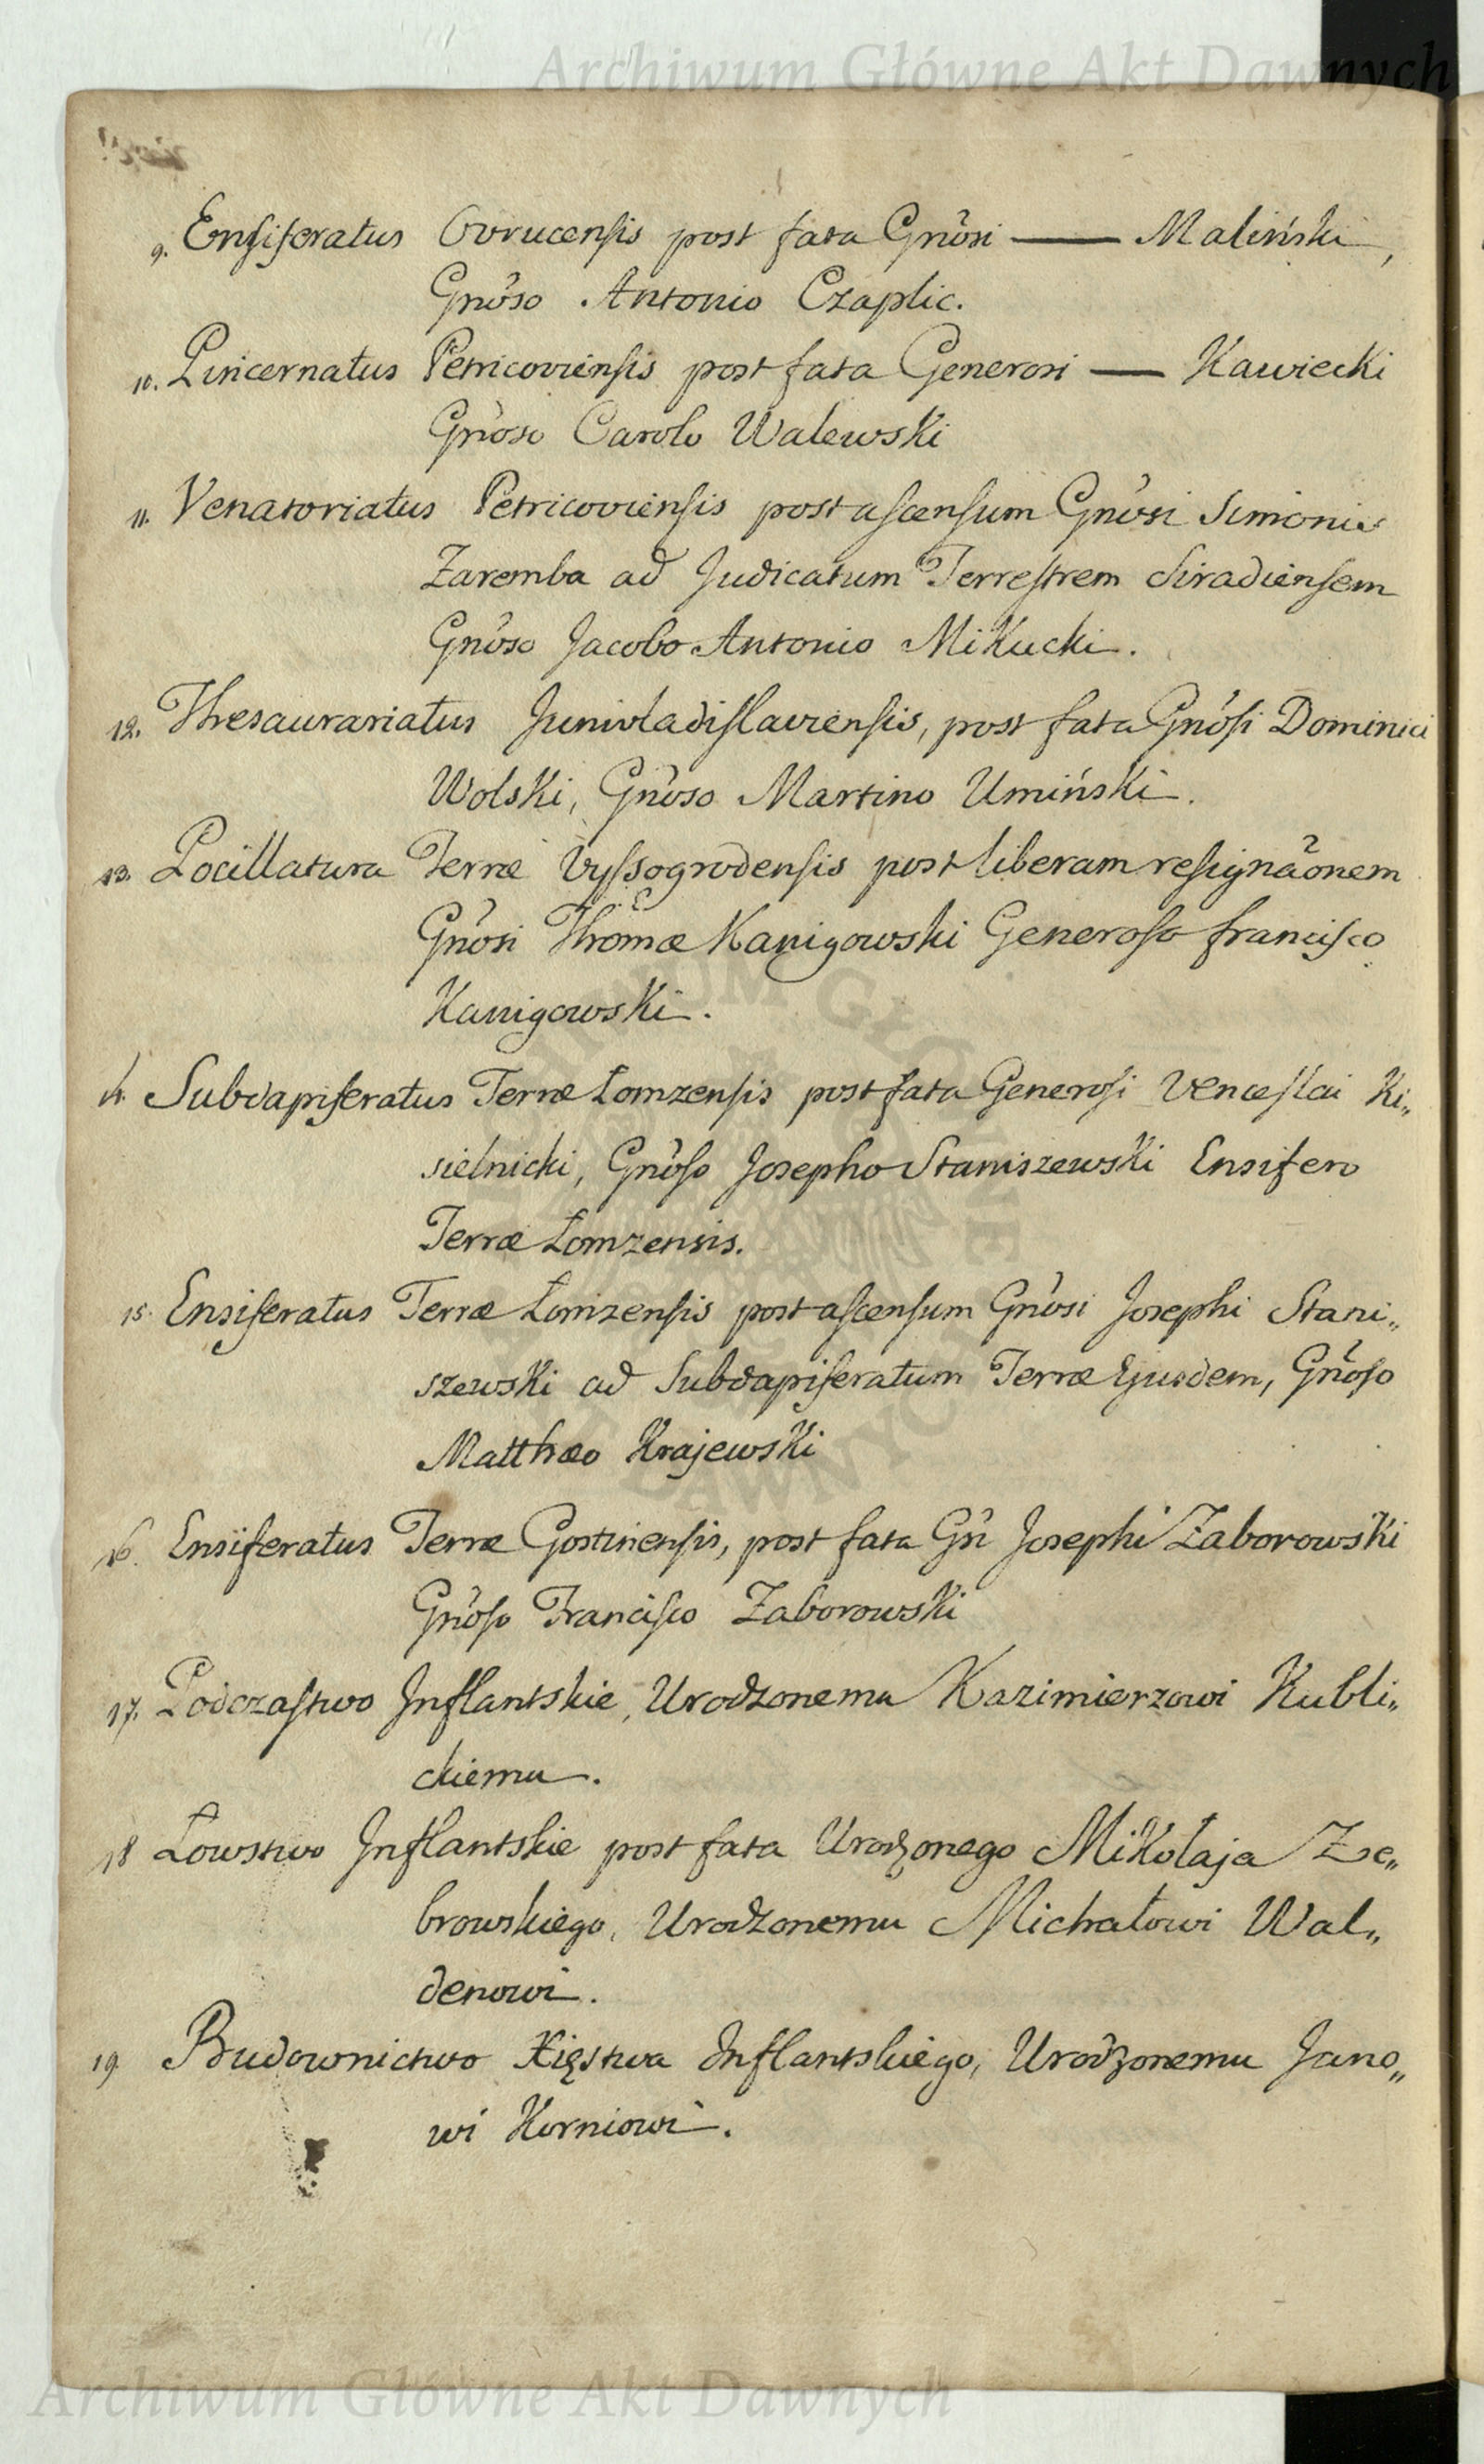 Archiwum Główne Akt Dawnych
9. Ensiferatus Ovrucensis post fata Gnôsi —— Maliński,
Gnôso Antonio Czaplic.
10. Pincernatus Petricoviensis post fata Generosi — Kawiecki
Gnôso Carolo Walewski
11. Venatoriatus Petricoviensis post ascensum Gnôsi Simonis
Zaremba ad Judicatum Terrestrem Siradiensem
Gnôso Jacobo Antonio Mikucki.
12. Thesaurariatus Junivladislaviensis, post fata Gnôsi Dominici
Wolski, Gnôso Martino Umiński.
13. Pocillatura Terræ Vyssogrodensis post liberam resignãonem
Gnôsi Thomæ Kanigowski Generoso Francisco
Kanigowski.
14. Subdapiferatus Terræ Łomzensis post fata Generosi Venceslai Ki„
sielnicki, Gnôso Josepho Staniszewski Ensifero
Terræ Łomzensis.
15. Ensiferatus Terræ Łomzensis post ascensum Gnôsi Josephi Stani„
szewski ad Subdapiferatum Terræ Ejusdem, Gnôso
Matthæo Krajewski
16. Ensiferatus Terræ Gostinensis, post fata Gñ Josephi Zaborowski
Gnôso Francisco Zaborowski
17. Podczastwo Inflantskie, Urodzonemu Kazimierzowi Kubli„
ckiemu.
18 Łowstwo Inflantskie post fata Urodzonego Mikołaja Ze„
browskiego, Urodzonemu Michałowi Wal„
denowi.
19. Budownictwo Xięstwa Inflantskiego, Urodzonemu Jano„
wi Korniowi.
Archiwum Główne Akt Dawnych